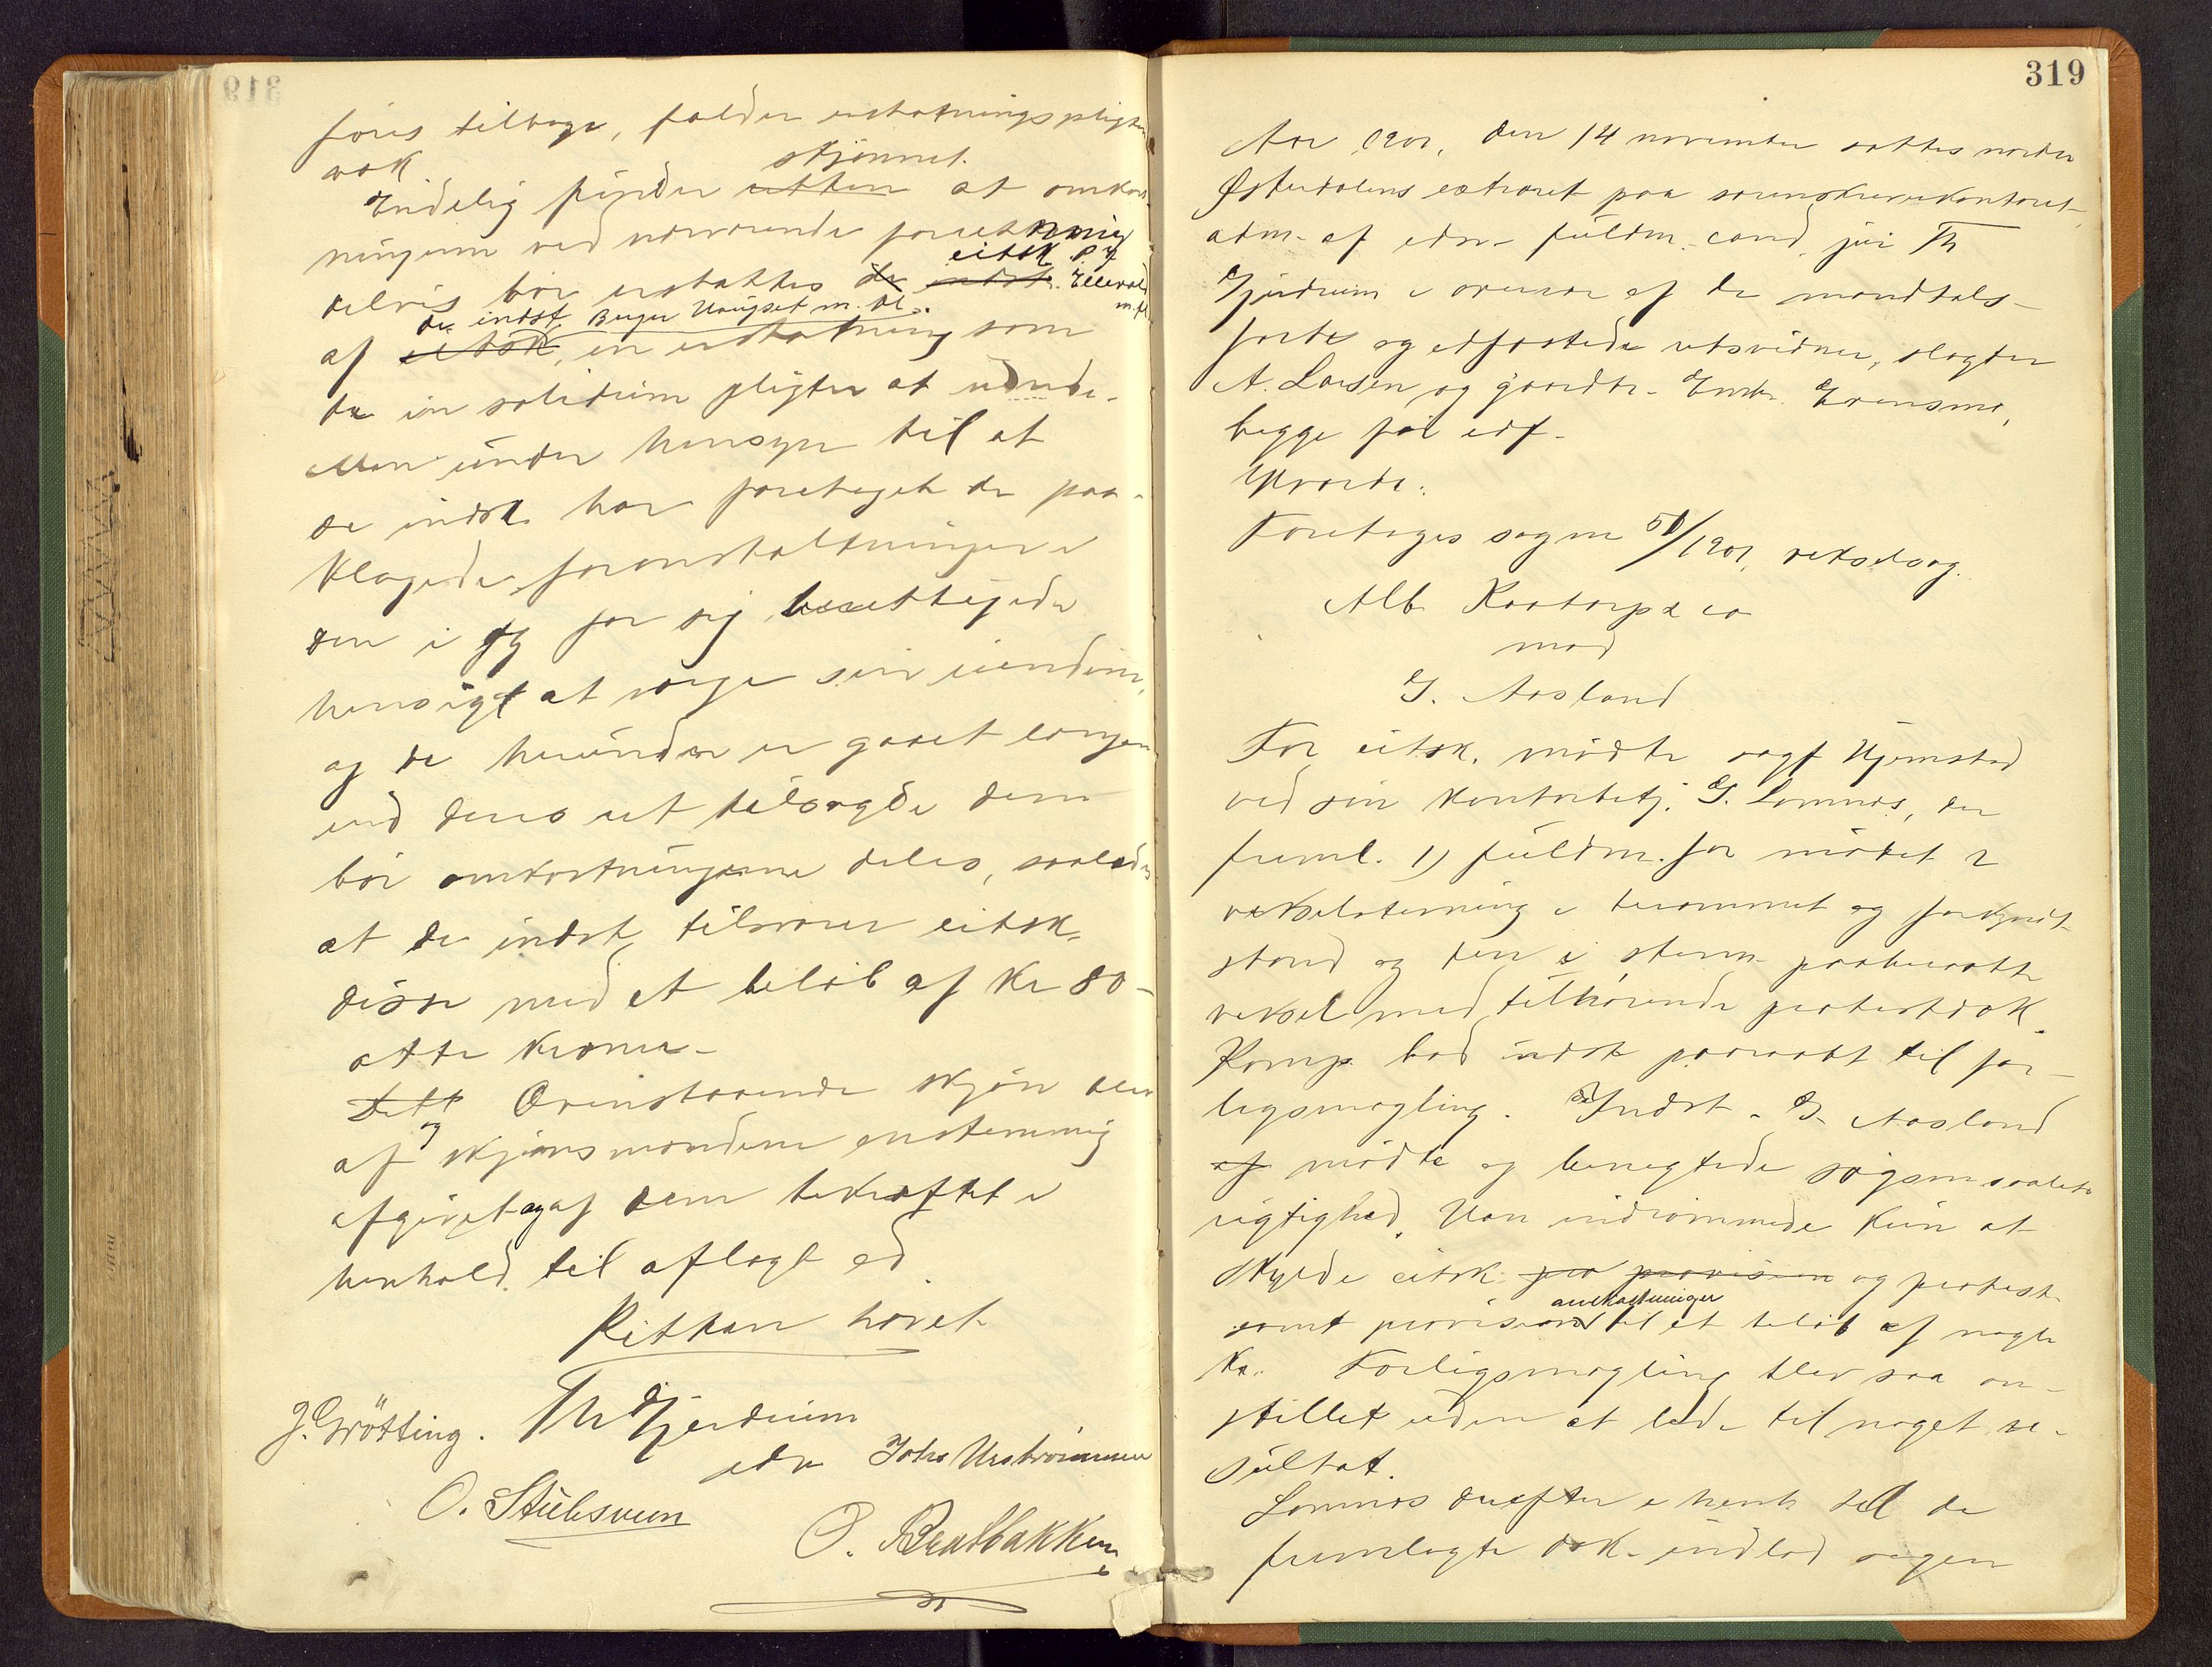 føres tilbage, falder erstatningspligten
væk.
Endelig finder retten skjønnet at omkost-
ningerne ved nærværende forretning
delvis bør erstattes de indst. citsk. P. Y. Ellevold m.fl.
af citsk de indst. Birger Haugset m. fl., en erstatning som
de in solidum pligter at udrede.
Men under hensyn til at
de indst. har foretaget de paa-
klagede foranstaltninger i
den i og for sig berettigede
hensigt at verge sin eiendom,
og de herunder er gaaet længer
end deres ret tilsagde dem
bør omkostningerne deles, saaledes
at de indst. tilsvarer citsk.
disse med et beløb af Kr 80 -
otti kroner -
Dette Ovenstaaende skjøn er
af og skjønsmændene enstemmig
afgivet og af dem bekræftet i
henhold til aflagt ed.
Retten hævet
J. Grøtting. Th Gjerdrum
edsv Johs Ursbrømmen
O. Stubsveen
O. Bratbakken
319
Aar 1901, den 14 november sattes nordre
Østerdalens extraret paa sorenskriverkontoret,
adm. af edsv. fuldm. cand. jur Th
Gjerdrum i overvær af de mandtals-
førte og edfæstede retsvidner, slagter
A. Larsen og gaardbr. Embr. Evensmo,
begge før edf.
Hvorda:
Foretages sag nr 51/1901, vekselsag.
Alb Kaatorp & co
mod
G. Aasland
For citsk. mødte sagf Hjemstad
ved sin kontorbetj. G. Lomnæs, der
freml. 1) fuldm. for mødet 2
vekselstevning i berammet og forkyndt
stand og den i stevn paaberaabte
veksel med tilhørende protestdok.
Komp. bad indst paaraabt til for-
ligsmægling. Indst. G. Aasland
af mødte og benegtede søgsmaalets
rigtighed. Han indrømmede kun at
skylde citsk. pro provision og protest
samt provision omkostninger til et beløb af nogle
Kr. Forligsmægling blev saa an-
stillet uden at lede til noget re-
sultat.
Lomnæs derefter i henh. til de
fremlagte dok. indlod sagen